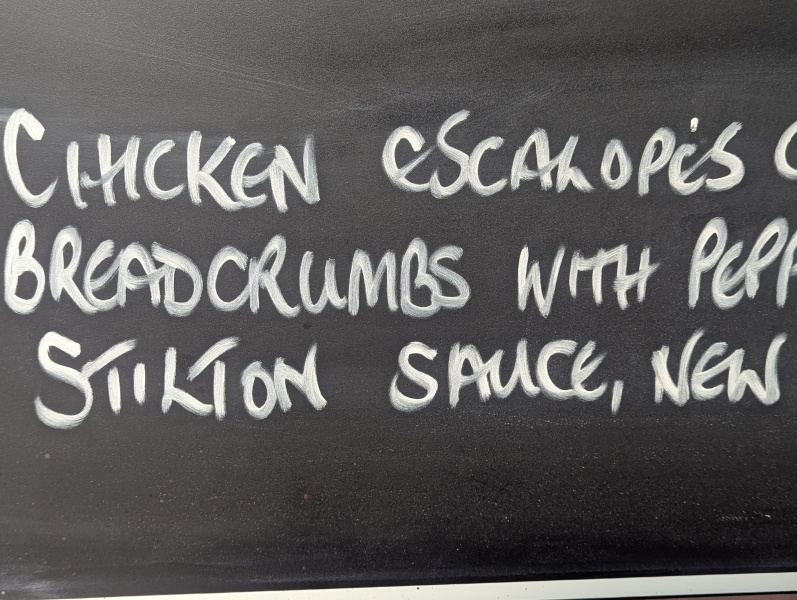 CHICKEN ESCALOPE'S C
BREADCRUMBS WITH PEPP
STILTON SAUCE, NEW